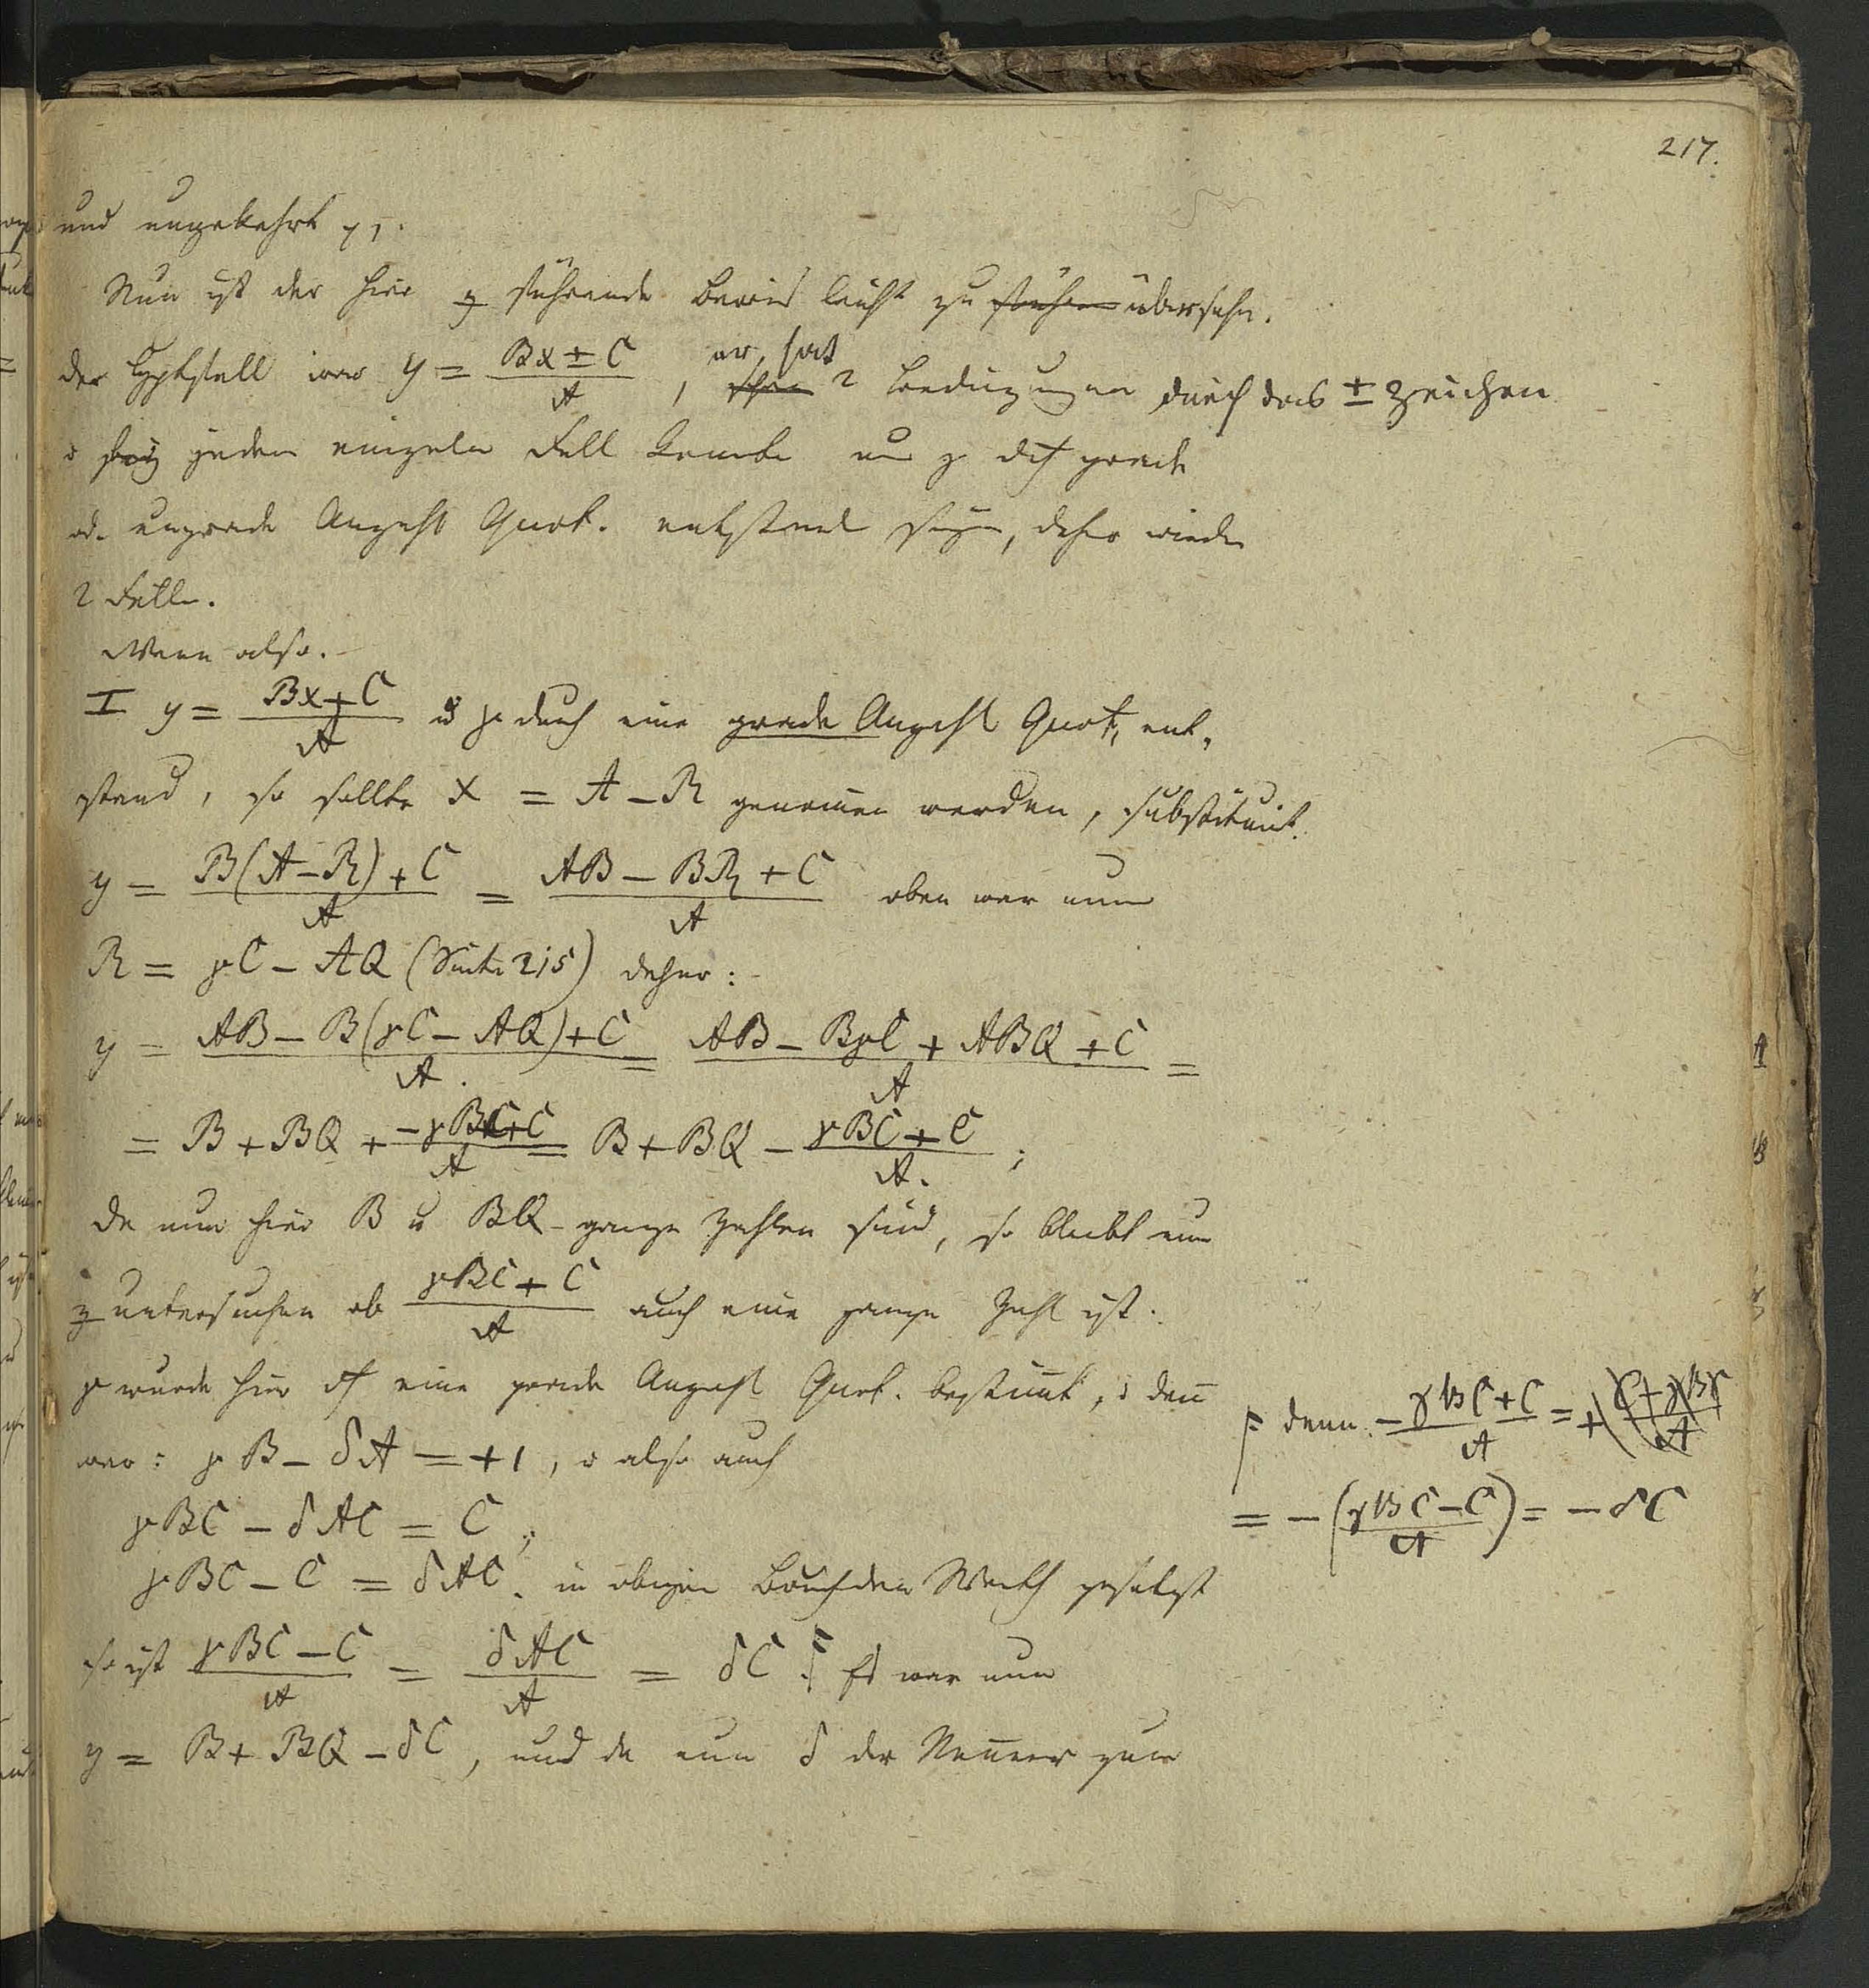 217.
und umgekehrt
Nun ist der hier z führende Beweis leicht zu führen übersehn.
der Hptfall war y = (Bx ± C)/A , er hat 2 Bedingungen durch das ± Zeichen
jeden einzeln Fall konnte nun γ durch grade
od. ungrade Anzahl Quot. entstand seyn, daher wieder
2 Fälle.
Wenn also.
I y = (Bx + C)/A u γ durch eine grade Anzahl Quot, ent-
stand, so sollte x = A – R genommen werden, substituirt.
y = (B(A–R) + C)/A = (AB – BR + C)/A oben war nun
R = γC – AQ (Seite 215) daher:
y = (AB – B(γC – AQ) + C)/A = (AB – BγC + ABQ + C)/A =
= B + BQ + (–γBC + C)/A = B + BQ – (γBC + C)/A ;
da nun hier B u BQ ganze Zahlen sind, so bleibt nur
z untersuchen ob (γBC + C)/A auch eine ganze Zahl ist.
γ wurde hier durch eine gerade Anzahl Quot. bestimt, denn
war: γB – δA = +1, also auch
γBC – δAC = C ;
γBC – C = δAC. in obigen Bruch den Werth gesetzt
so ist (γBC – C)/A = δAC/A = δC. Es war nun
y = B + BQ – δC, und da nun δ der Nenner zum
denn. (–γBC + C)/A = +
= –((γBC – C)/A) = –δC